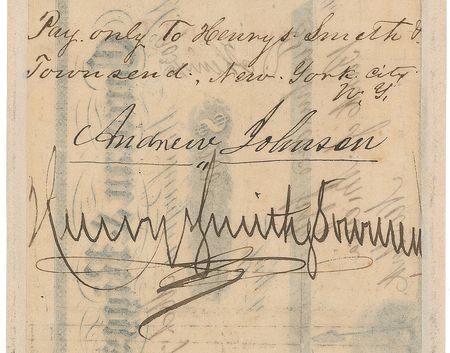 Pay only to Henrys Smith &
Townsend, New York City
N.Y.
Andrew Johnson
Henry Smith Townsen